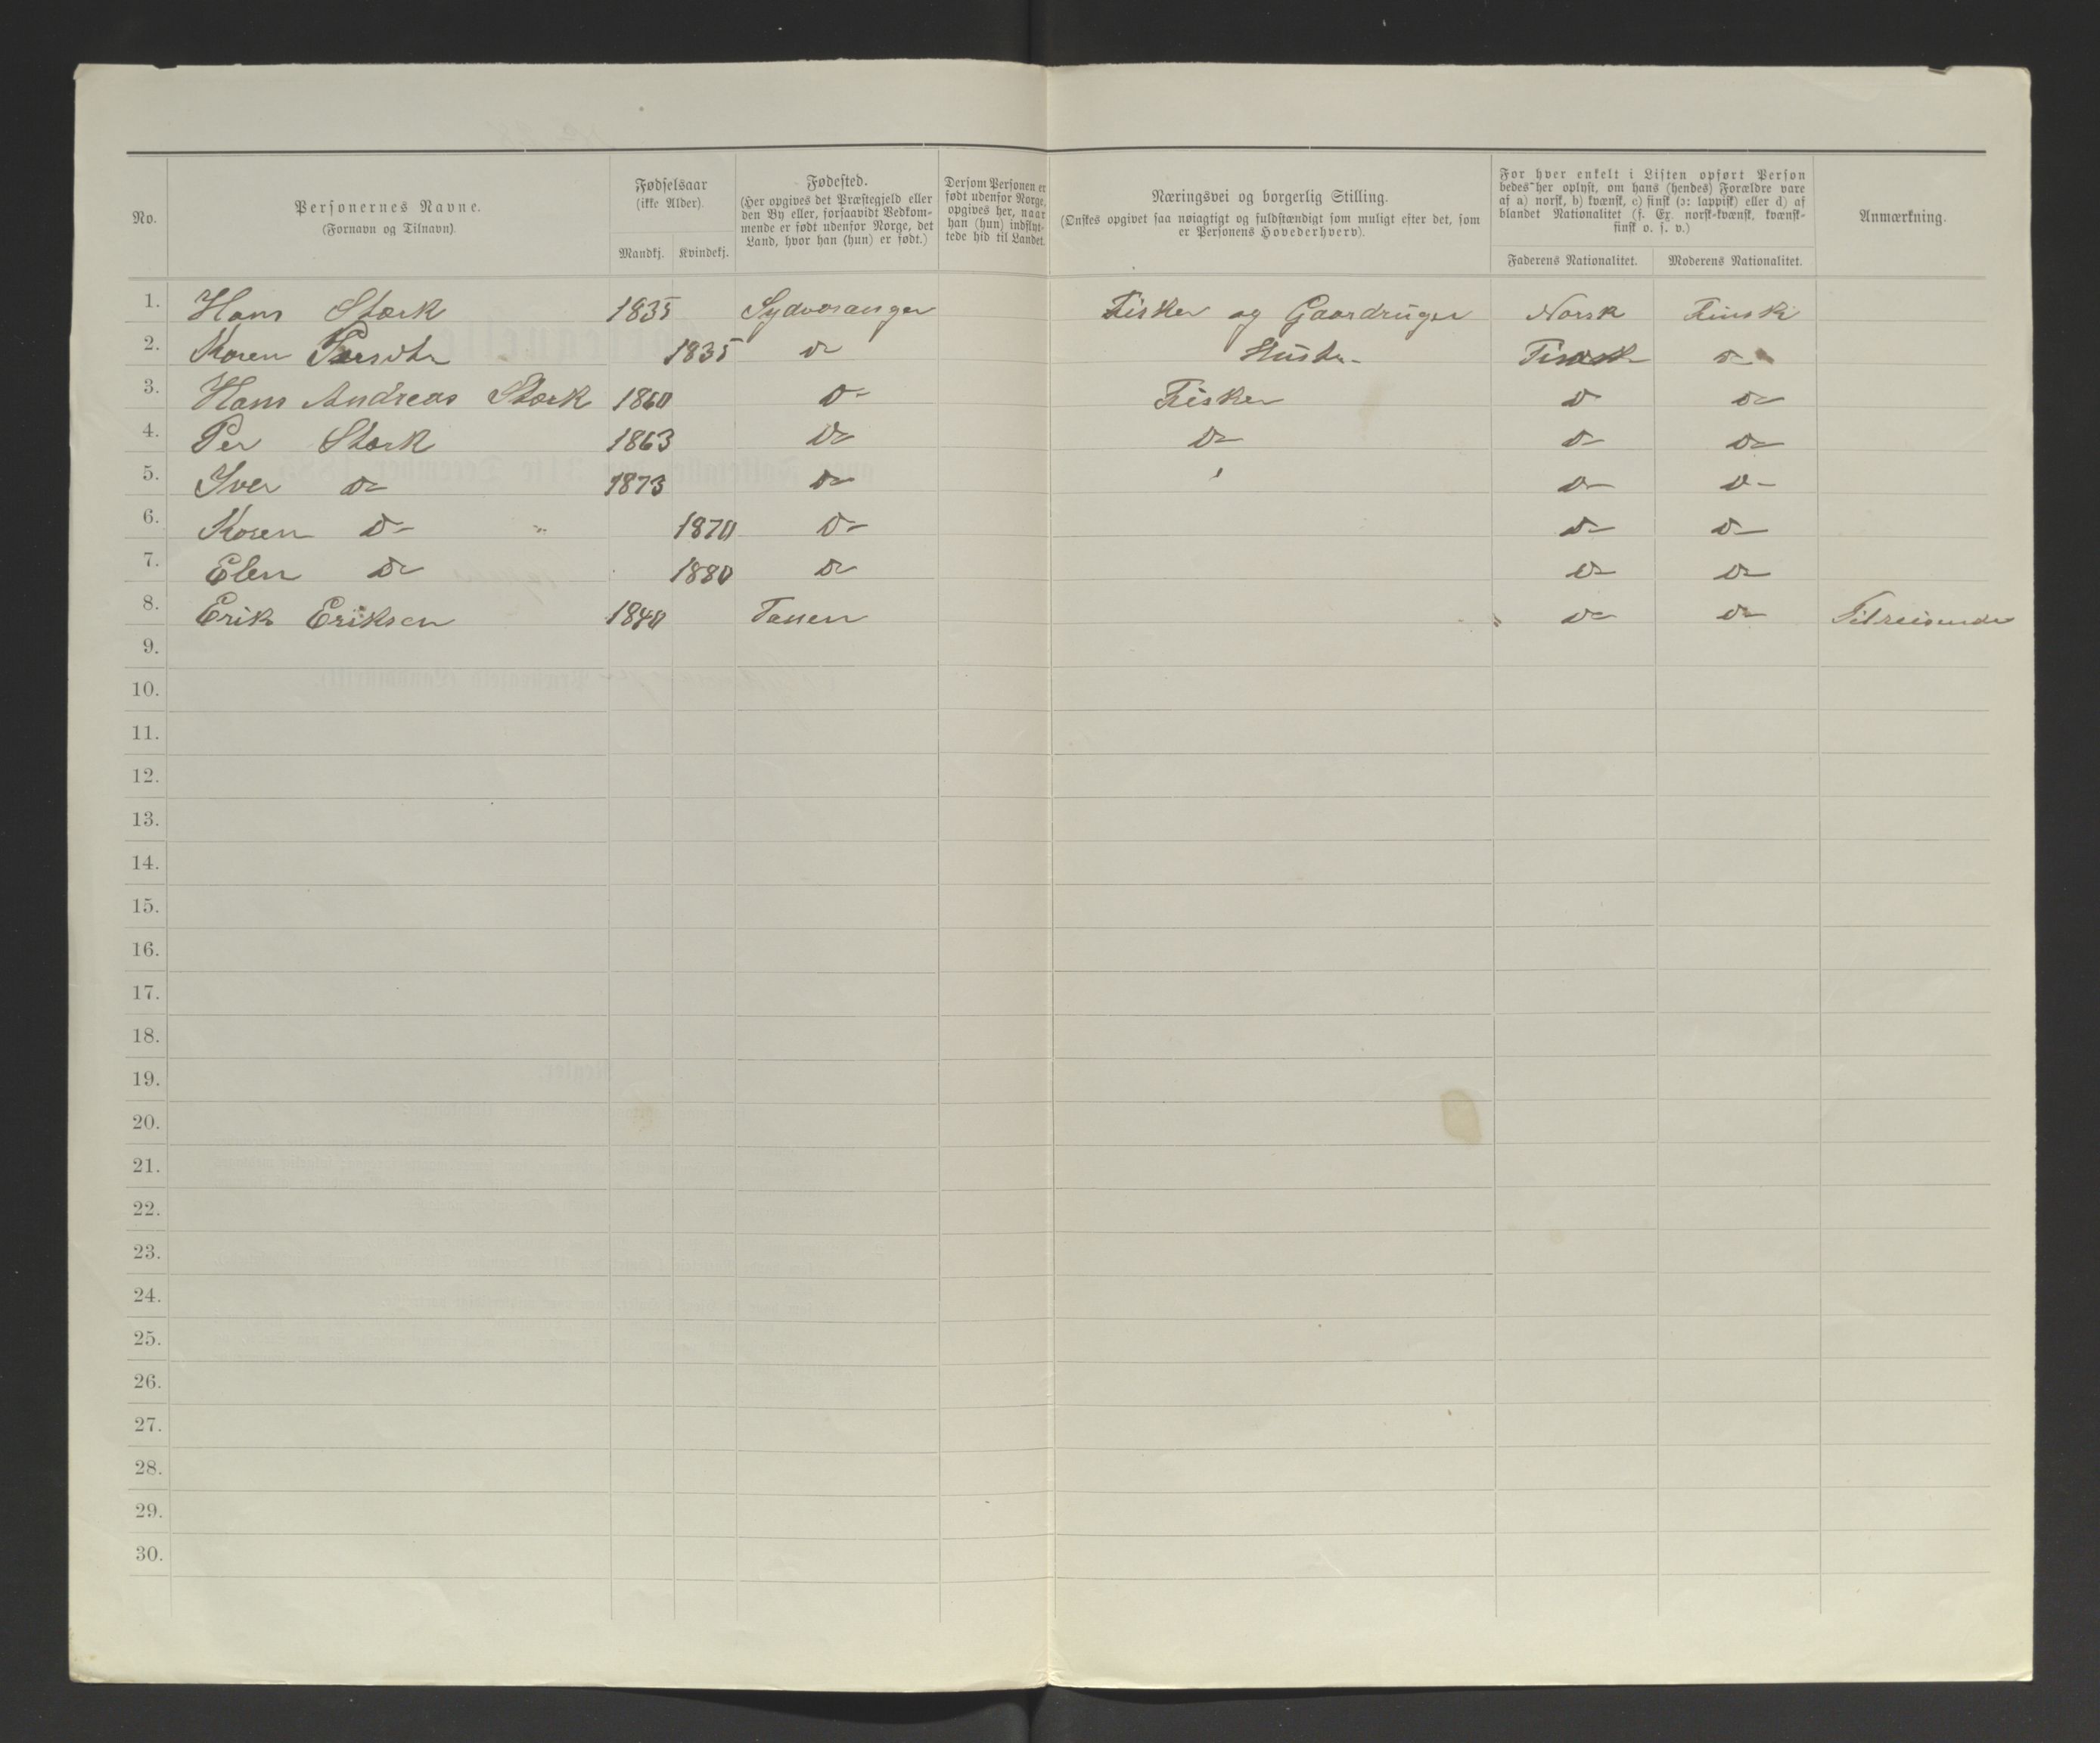 No.
Personernes Navne.
(Fornavn og Tilnavn).
Fødselsaar
(ikke Alder).
Mandkj. Kvindekj.
Fødested.
(Her opgives det Præstegjeld eller
den By eller, forsaavidt Vedkom-
mende er født udenfor Norge, det
Land, hvor han (hun) er født.)
Dersom Personen er
født udenfor Norge,
opgives her, naar
han (hun) indflyt-
tede hid til Landet.
Næringsvei og borgerlig Stilling.
(Ønskes opgivet saa nøiagtigt og fuldstændigt som muligt efter det, som
er Personens Hovederhverv).
For hver enkelt i Listen opført Person
bedes her oplyst, om hans (hendes) Forældre vare
af a) norsk, b) kvænsk, c) finsk (ɔ: lappisk) eller d) af
blandet Nationalitet (f. Ex. norsk-kvænsk, kvænsk-
finsk o. s. v.)
Faderens Nationalitet. Moderens Nationalitet.
Anmærkning.
1. Hans Stærk 1835 Sydvaranger Fisker og Gaardruger Norsk Finsk
2. Karen 1835 do Hustr. Finsk do
3. Hans Andreas Stærk 1860 do Fisker do do
4. Per Stærk 1863 do do do do
5. Iver do 1873 do do do
6. Karen do 1870 do do do
7. Elen do 1880 do do do
8. Erik Eriksen 1840 Tanen do do Tilreisende
9.
10.
11.
12.
13.
14.
15.
16.
17.
18.
19.
20.
21.
22.
23.
24.
25.
26.
27.
28.
29.
30.